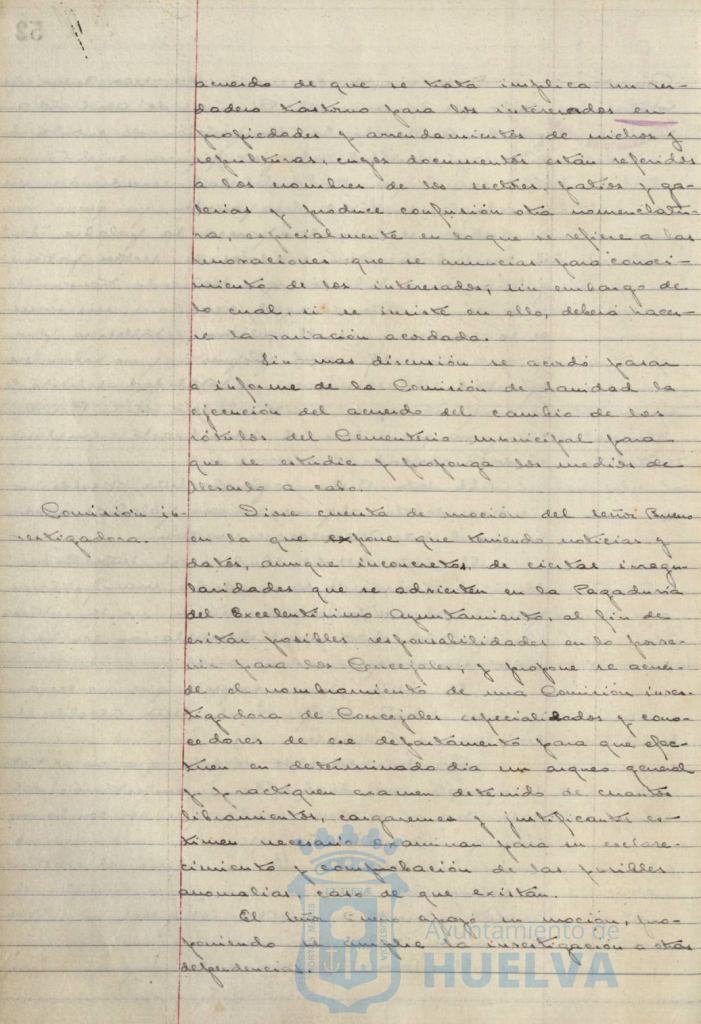 acuerdo de que se trata implica un ver-
dadero trastorno para los interesados en
propiedades y arrendamientos de nichos y
sepulturas, cuyos documentos están referidos
a los nombres de los sectores, patios y ga-
lerias y produce confusión otra nomenclatu-
ra, especialmente en lo que se refiere a las
renovaciones que se anuncias para conoci-
miento de los interesados; sin embargo de
lo cual, si se insiste en ello, deberá hacer-
se la variación acordada.
Sin mas discusión se acordó pasar
a informe de la Comisión de Sanidad la
ejecución del acuerdo del cambio de los
rótulos del Cementerio municipal para
que se estudie y proponga los medios de
llevarlo a cabo.
Comisión in-
vestigadora.
Diose cuenta de moción del señor Bueno
en la que expone que teniendo noticias y
datos, aunque inconcretos, de ciertas irregu-
laridades que se advierten en la Pagaduría
del Excelentísimo Ayuntamiento, al fin de
evitar posibles responsabilidades en lo porve-
nir para los Concejales; y propone se acuer-
de el nombramiento de una Comisión inves-
tigadora de Concejales especializados y cono-
cedores de ese departamento para que efec-
tuen en determinado dia un arqueo general
y practiquen examen detenido de cuantos
libramientos, cargaremes y justificantes es-
timen necesario examinar para su esclare-
cimiento y comprobación de las posibles
anomalias, caso de que existan.
El señor Bueno apoyó su moción, pro-
poniendo se amplie la investigación a otras
dependencias.
Ayuntamiento de
HUELVA